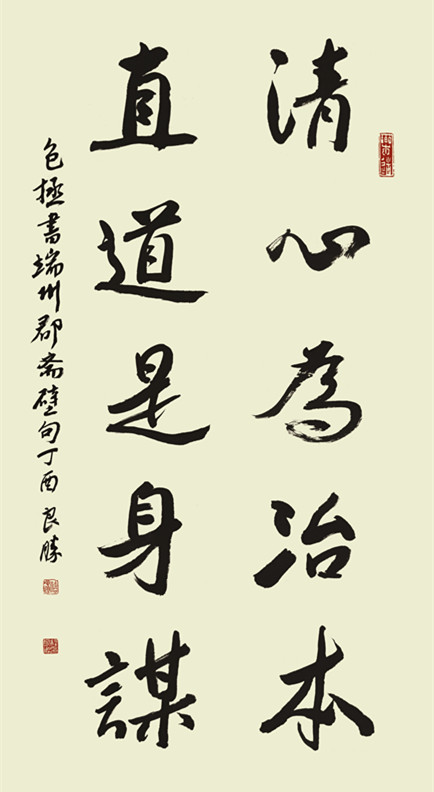 清心為治本
直道是身謀
包拯書端州郡斋壁句丁酉良勝